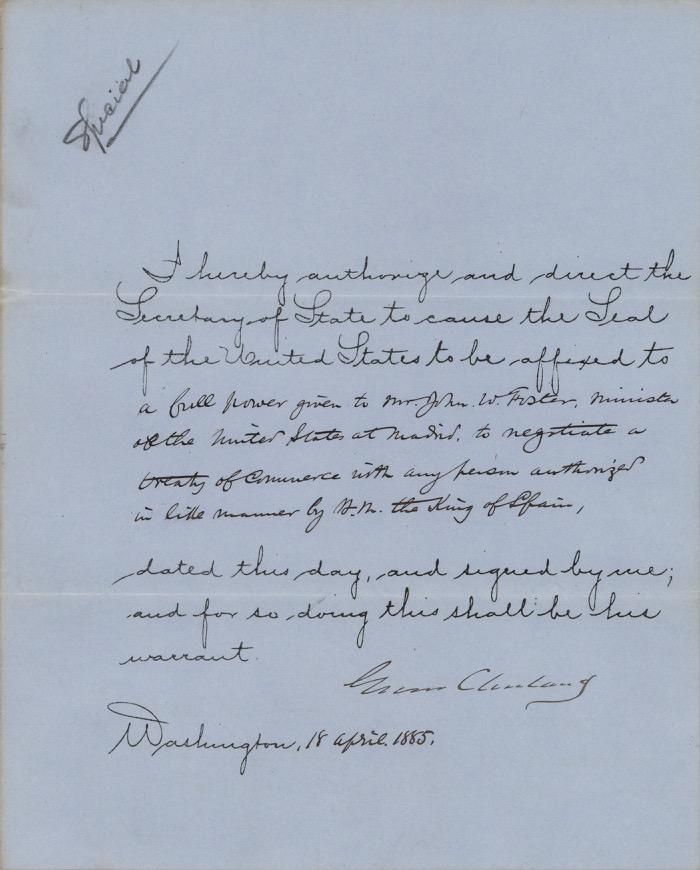 Special
I hereby authorize and direct the
Secretary of State to cause the Seal
of the United States to be affixed to
a full power given to Mr. John. W. Foster, Minister
of the United States at Madrid, to negotiate a
treaty of Commerce with any person authorized
in like manner by H. M. the King of Spain,
dated this day, and signed by me;
and for so doing this shall be his
warrant.
Grover Cleveland
Washington, 18 April. 1885.